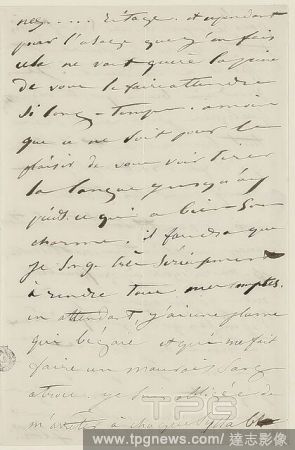 nez..... l'étage. et cependant
pour l'usage que j'en fais
cela ne vaut guère la peine
de vous le faire attendre
si long-temps. à moins
que ce ne soit pour le
plaisir de vous voir tirer
la langue jusqu'aux
pieds. ce qui a bien son
charme. il faudra que
je songe très sérieusement
à rendre tous mes comptes.
en attendant j'ai une plume
qui bégaie et qui me fait
faire un mauvais sang
atroce. je suis obligée de
m'arrêter à chaque syllabe
TPG
www.tpgnews.com / 達志影像